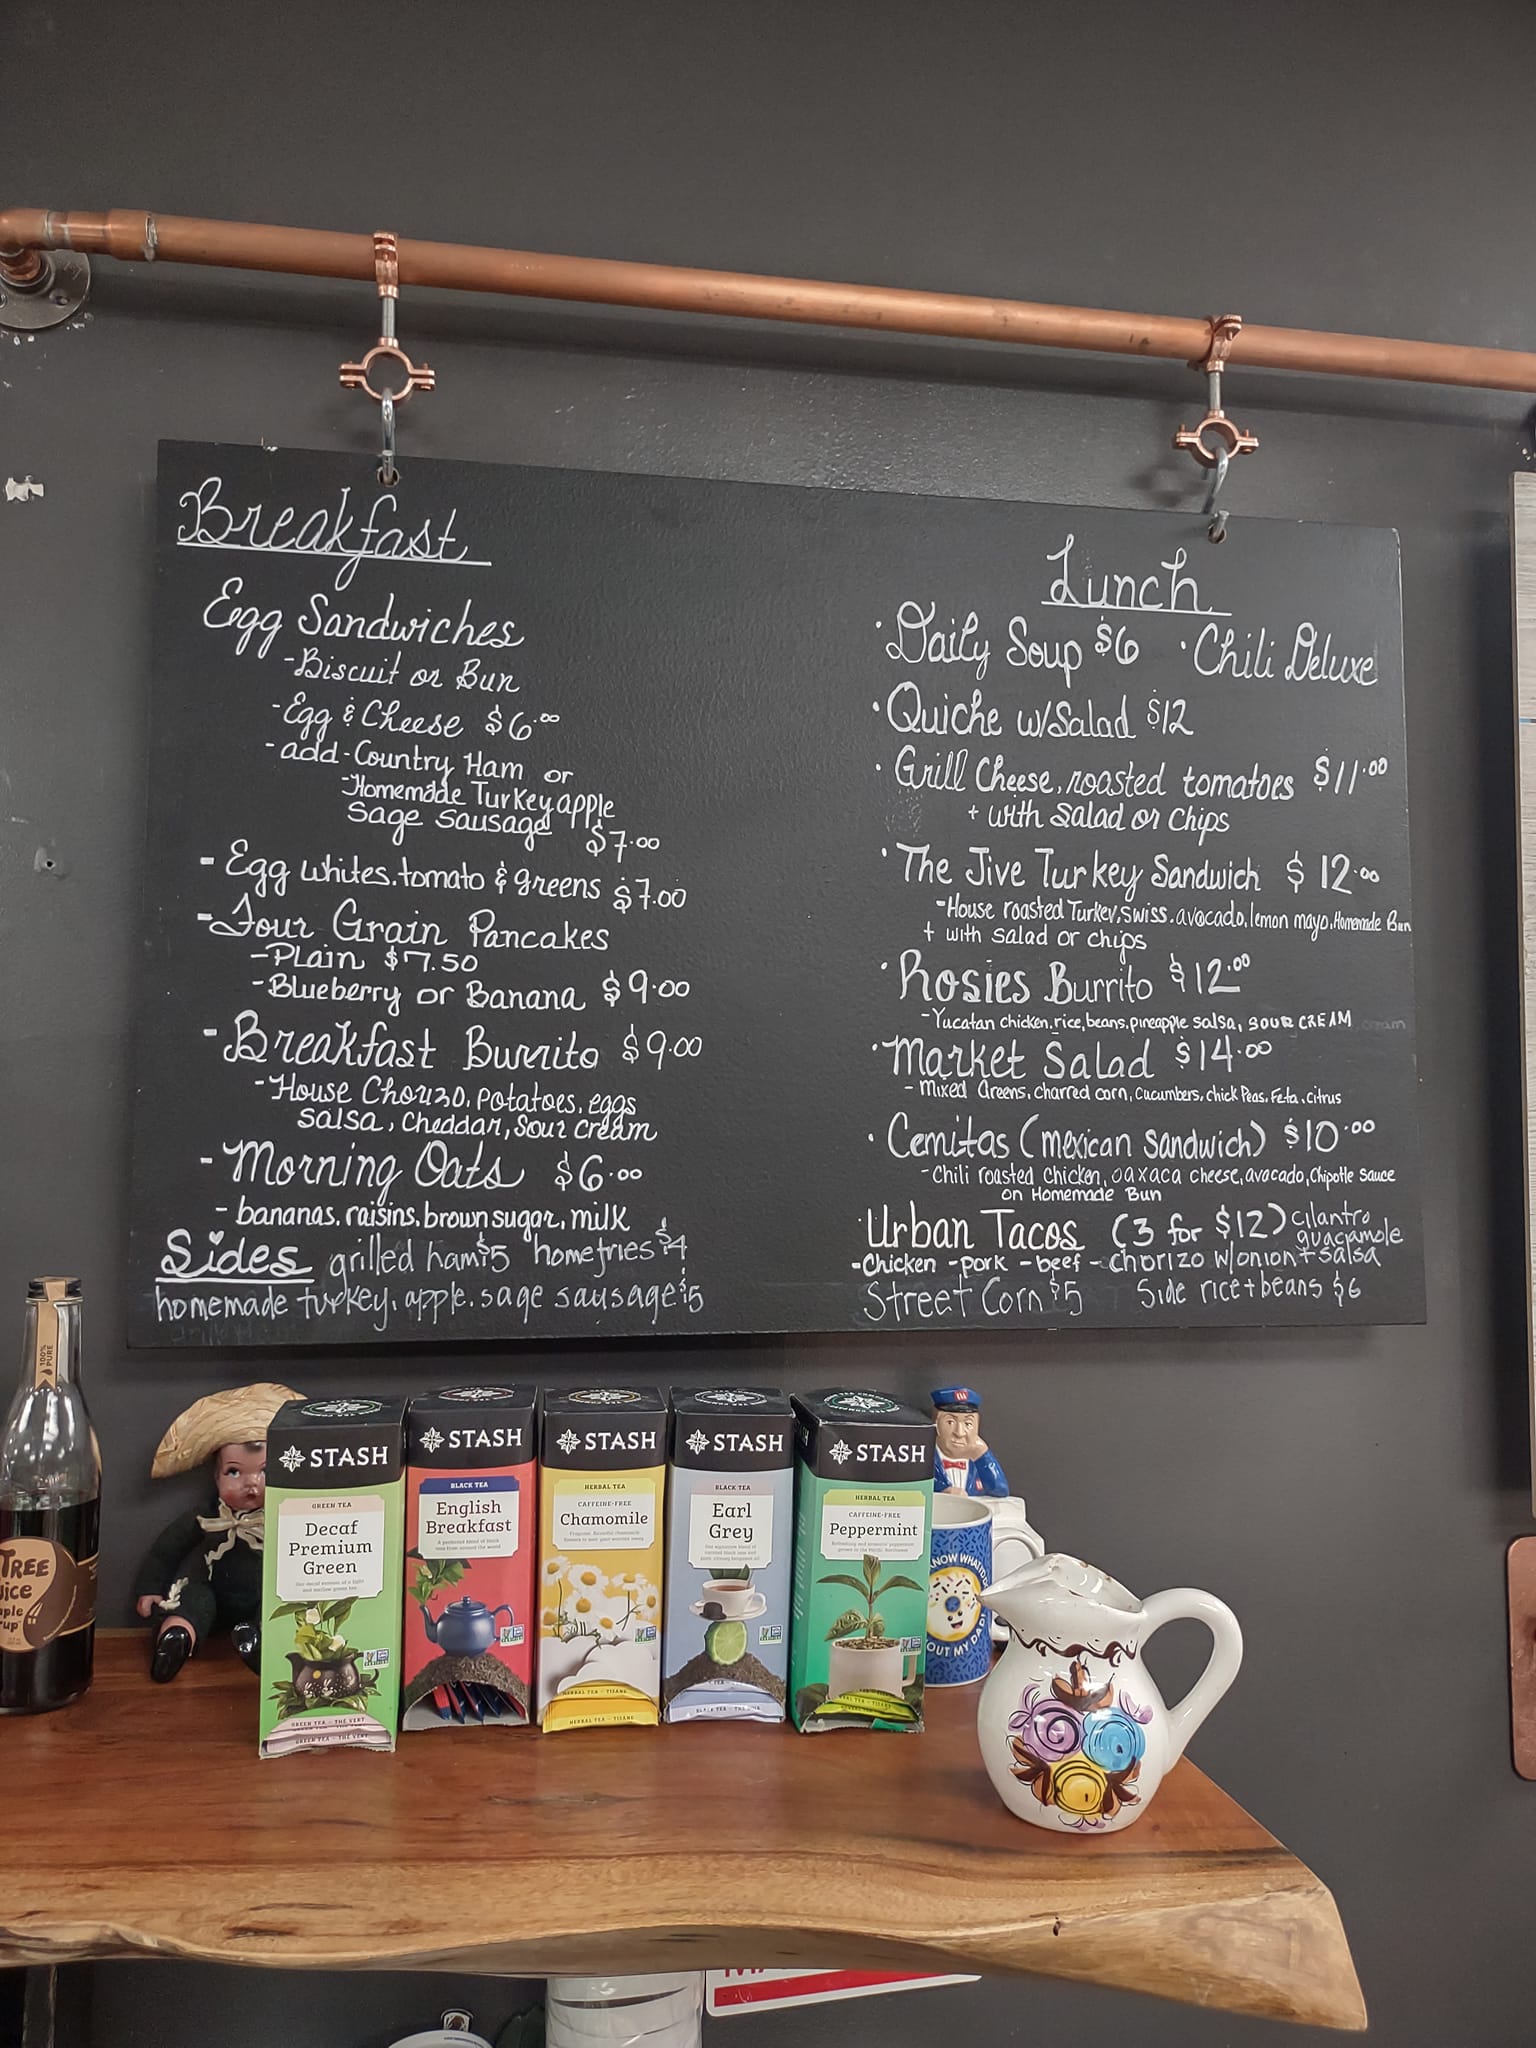 Breakfast
Egg Sandwiches
-Biscuit or Bun
-Egg & Cheese $6.00
-add-Country Ham or
-Homemade Turkey apple
Sage sausage $7.00
- Egg whites, tomato & greens $7.00
- Four Grain Pancakes
-Plain $7.50
-Blueberry or Banana $9.00
- Breakfast Burrito $9.00
-House Chorizo, potatoes, eggs
salsa, cheddar, sour cream
- Morning Oats $6.00
- bananas, raisins, brown sugar, milk
Sides grilled ham $5 homefries $4
homemade turkey, apple, sage sausage $5
Lunch
· Daily Soup $6 · Chili Deluxe
· Quiche w/Salad $12
· Grill Cheese, roasted tomatoes $11.00
+ with salad or chips
· The Jive Turkey Sandwich $12.00
-House roasted Turkey, swiss, avocado, lemon mayo, Homemade Bun
+ with salad or chips
· Rosies Burrito $12.00
-Yucatan chicken, rice, beans, pineapple salsa, SOUR CREAM
· Market Salad $14.00
- Mixed Greens, charred corn, cucumbers, chick Peas, Feta, citrus
· Cemitas (mexican sandwich) $10.00
-Chili roasted chicken, oaxaca cheese, avocado, Chipotle Sauce
on Homemade Bun
Urban Tacos (3 for $12) cilantro
guacamole
-Chicken -pork -beef -chorizo w/onion + salsa
Street Corn $5 Side rice + beans $6
100% PURE
TREE
STASH
GREEN TEA
Decaf
Premium
Green
GREEN TEA - THÉ VERT
GREEN TEA - THÉ VERT
STASH
BLACK TEA
English
Breakfast
STASH
HERBAL TEA
CAFFEINE-FREE
Chamomile
HERBAL TEA - TISANE
HERBAL TEA - TISANE
STASH
BLACK TEA
Earl
Grey
STASH
HERBAL TEA
CAFFEINE-FREE
Peppermint
KNOW WHAT
OUT MY DA